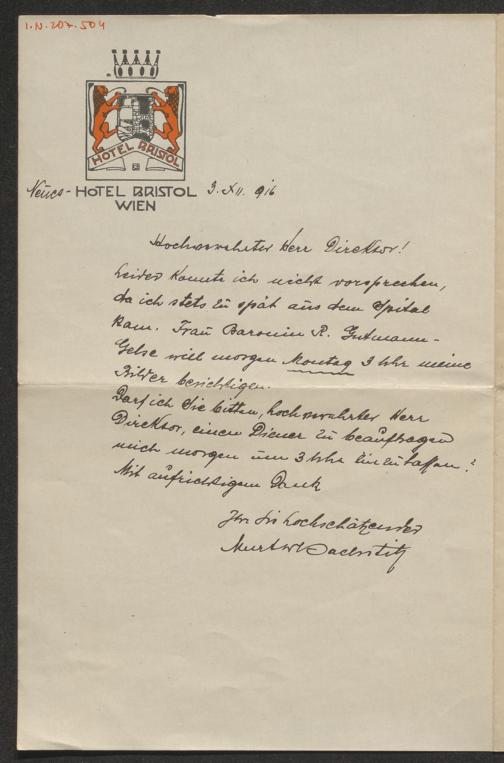 I.N. 207.504
HOTEL BRISTOL
Neues - HOTEL BRISTOL 3. XII. 916
WIEN
Hochverehrter Herr Direktor!
Leider konnte ich nicht vorsprechen,
da ich stets zu spät aus dem Spital
kam. Frau Baronin R. Gutmann-
Gelse will morgen Montag 3 Uhr meine
Bilder besichtigen.
Darf ich Sie bitten, hochverehrter Herr
Direktor, einen Diener zu beauftragen
mich morgen um 3 Uhr einzulassen?
Mit aufrichtigem Dank
Ihr Sie hochschätzender